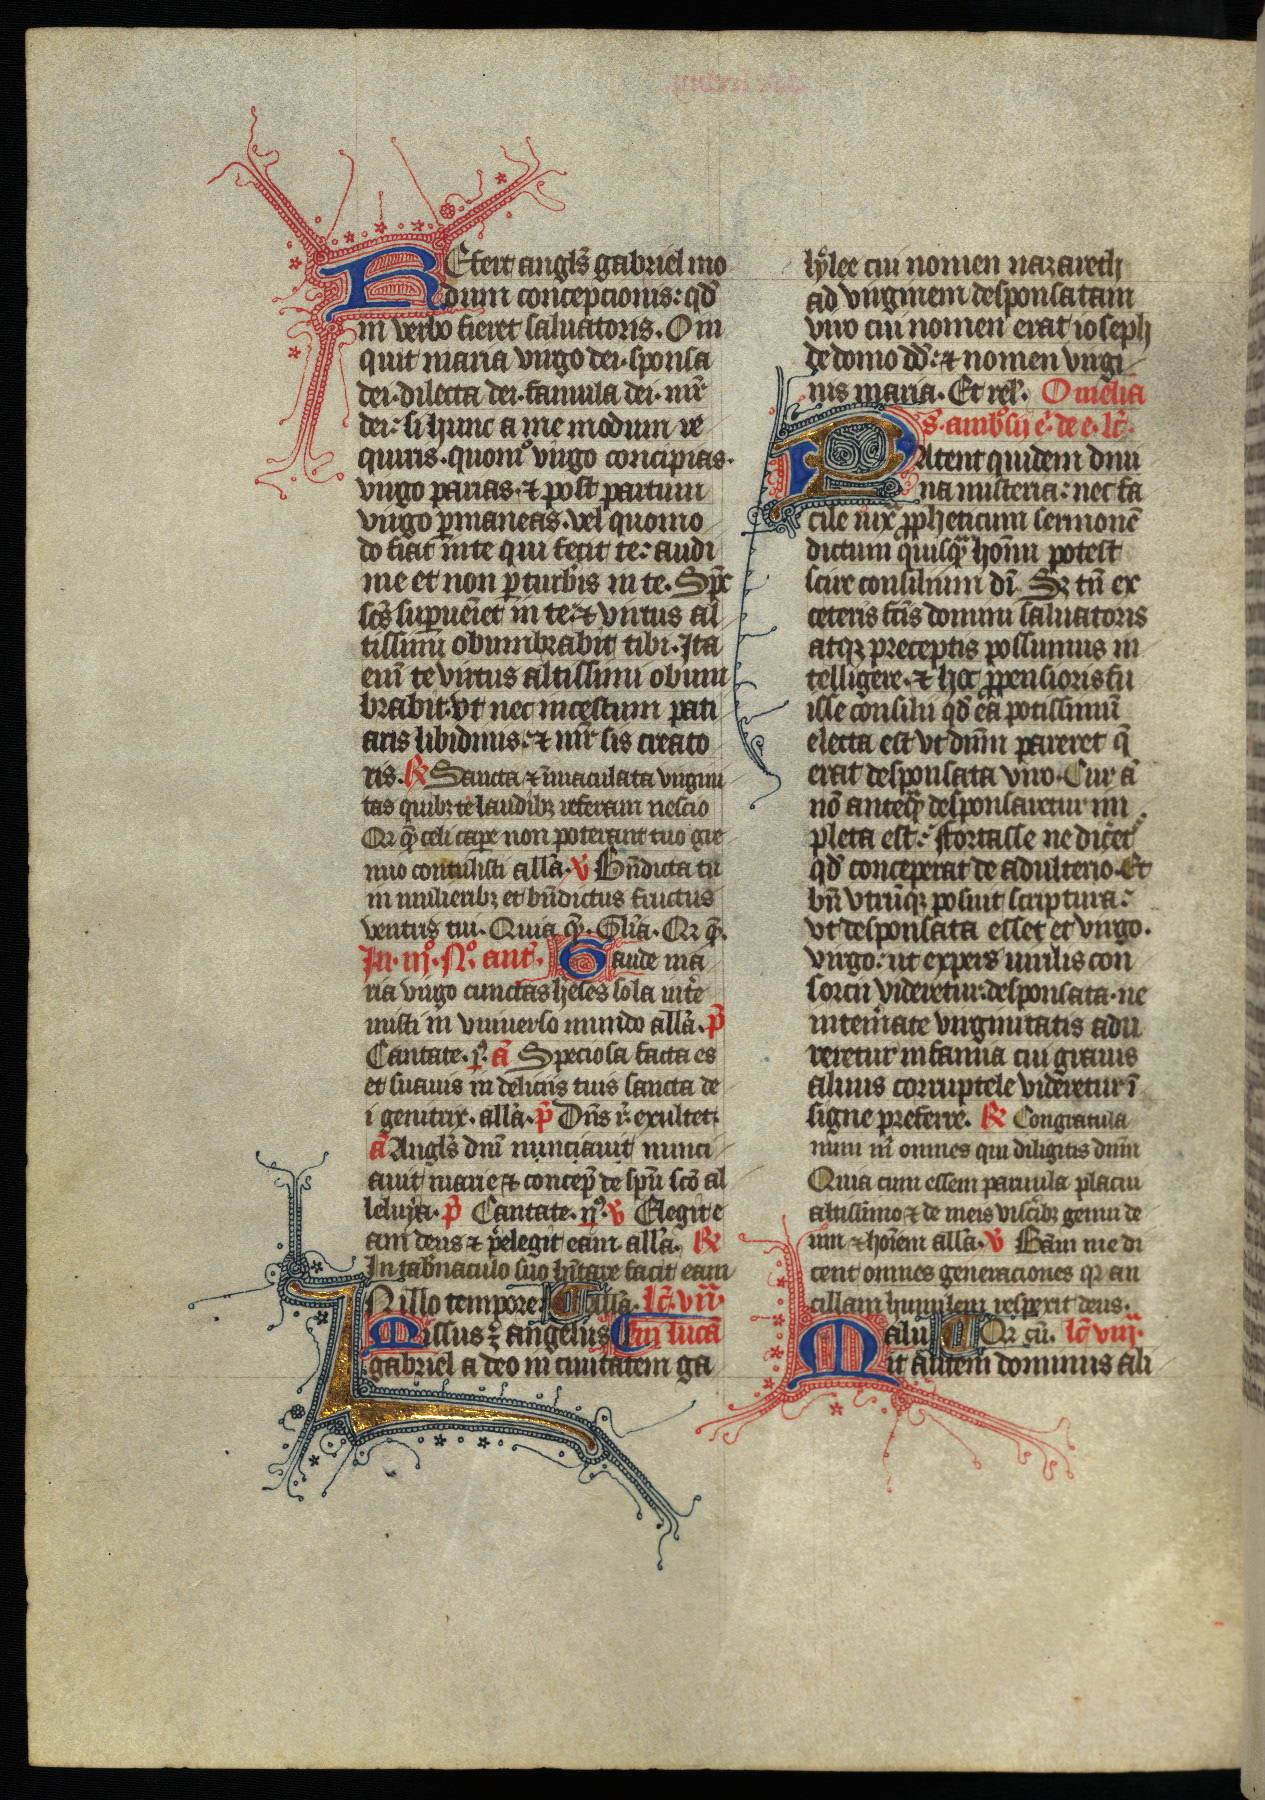 Efert angl̃s gabriel mo
dum concepcionis: qd̃
in verbo fieret saluatoris. O in
quit maria virgo dei. sponsa
dei. dilecta dei. famula dei. mr̃
dei: si hunc a me modum re
quiris. quom̊ virgo concipias.
virgo parias. ⁊ post partum
virgo ꝑmaneas. vel quomo
do fiat in te qui fecit te: audi
me et non ꝑturbis in te. Spc̃
scs̃ suꝑueniet in te: ⁊ virtus al
tissimi obumbrabit tibi. Ita
eni̅ te virtus altissimi obum
brabit. vt nec incestum pati
aris libidinis: ⁊ mr̃ sis creato
ris. ℟ Sancta ⁊ i̅maculata virgini
tas quibꝫ te laudibꝫ referam nescio
Qr q̃ celi caꝑe non poterant tuo gre
mio contulisti all̃a. ℣ Bn̅dicta tu
in mulieribꝫ et bn̅dictus fructus
ventris tui. Quia q̃. Gl̃ia. Qr q̃.
In. iij̊. N̊. ant̃. Gaude ma
ria virgo cunctas he̅ses sola inte̾
misti in vniuerso mundo all̃a. p̃
Cantate. j̊. a̅ Speciosa facta es
et suauis in deliciis tuis sancta de
i genitrix. all̃a. p̃ Dn̅s r̃. exultet:
a̅ Angl̃s dni̅ nunciauit nunci
auit marie ⁊ concep̃ de spũ sc̅o al
leluya. p̃ Cantate. ij̊. ℣ Elegit e
am deus ⁊ p̃elegit eam all̃a. ℟
In tab̾naculo suo h̅itare facit eam
N illo tempore. All̃a. lc̅. vij.
Missus ⁊̃ angelus Em̅ lucã
gabriel a deo in ciuitatem ga
lylee cui nomen nazareth
ad virginem desponsatam
viro cui nomen erat ioseph
de domo dd̃: ⁊ nomen virgi
nis maria. Et rel̃. Omelia
s̃. amb̊sii e̾. de e. lc̅.
Atent quidem diui
na misteria: nec fa
cile iux̃ ꝓpheticum sermone̅
dictum quisq̃ hoi̅m potest
scire consilium di̅. Sꝫ tn̅ ex
ceteris fc̅is domini saluatoris
atqꝫ preceptis possumus in
telligere. ⁊ hoc ꝓpensioris fu
isse consilii qd̃ ea potissimu̅
electa est vt dn̅m pareret q̃
erat desponsata viro. Cur a̅
no̅ anteq̃ desponsaretur im
pleta est: Fortasse ne diceret
qd̃ conceperat de adulterio. Et
bn̅ vtru̅qꝫ posuit scriptura:
vt desponsata esset et virgo.
virgo: ut expers uirilis con
sorcii videretur: desponsata. ne
intem̾ate virginitatis adu
reretur infamia cui grauis
aluus corruptele videretur i̅
signe preferre. ℟ Congratula
mini m̅ omnes qui diligitis dn̅m
Quia cum essem paruula placui
altissimo ⁊ de meis viscibꝫ genui de
um ⁊ hoi̅em all̃a. ℣ Ba̅m me di
cent omnes generaciones qr an
cillam humilem respexit deus.
alu Qr cu̅. lc̅ viij.
Mit autem dominus ali